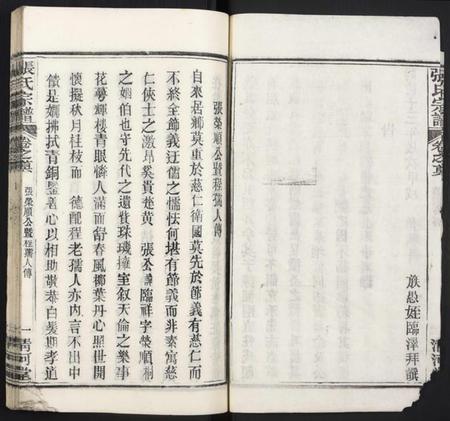 張氏宗譜
卷之 
族愚姪臨澤拜譔
張榮順公暨程孺人傳
自來居鄉莫重於慈仁衛國莫先於節義有慈仁而
不終全節義迂儒之懦怯何堪有節義而非素寓慈
仁俠士之激昂奚貴趙黃 張公諱臨祥字榮順
之姻伯也守先代之遺貲珠璣擁室叙天倫之樂事
花萼輝樓青眼憐人滿而舒春風楊葉丹心照世開
懷挹秋月桂枝而 德配程老孺人亦內言不出中
饋是嫻拂拭青銅鑒善心以相助 白髮期孝道
張氏宗譜
卷之
張榮順公暨程孺人傳
一
清河堂